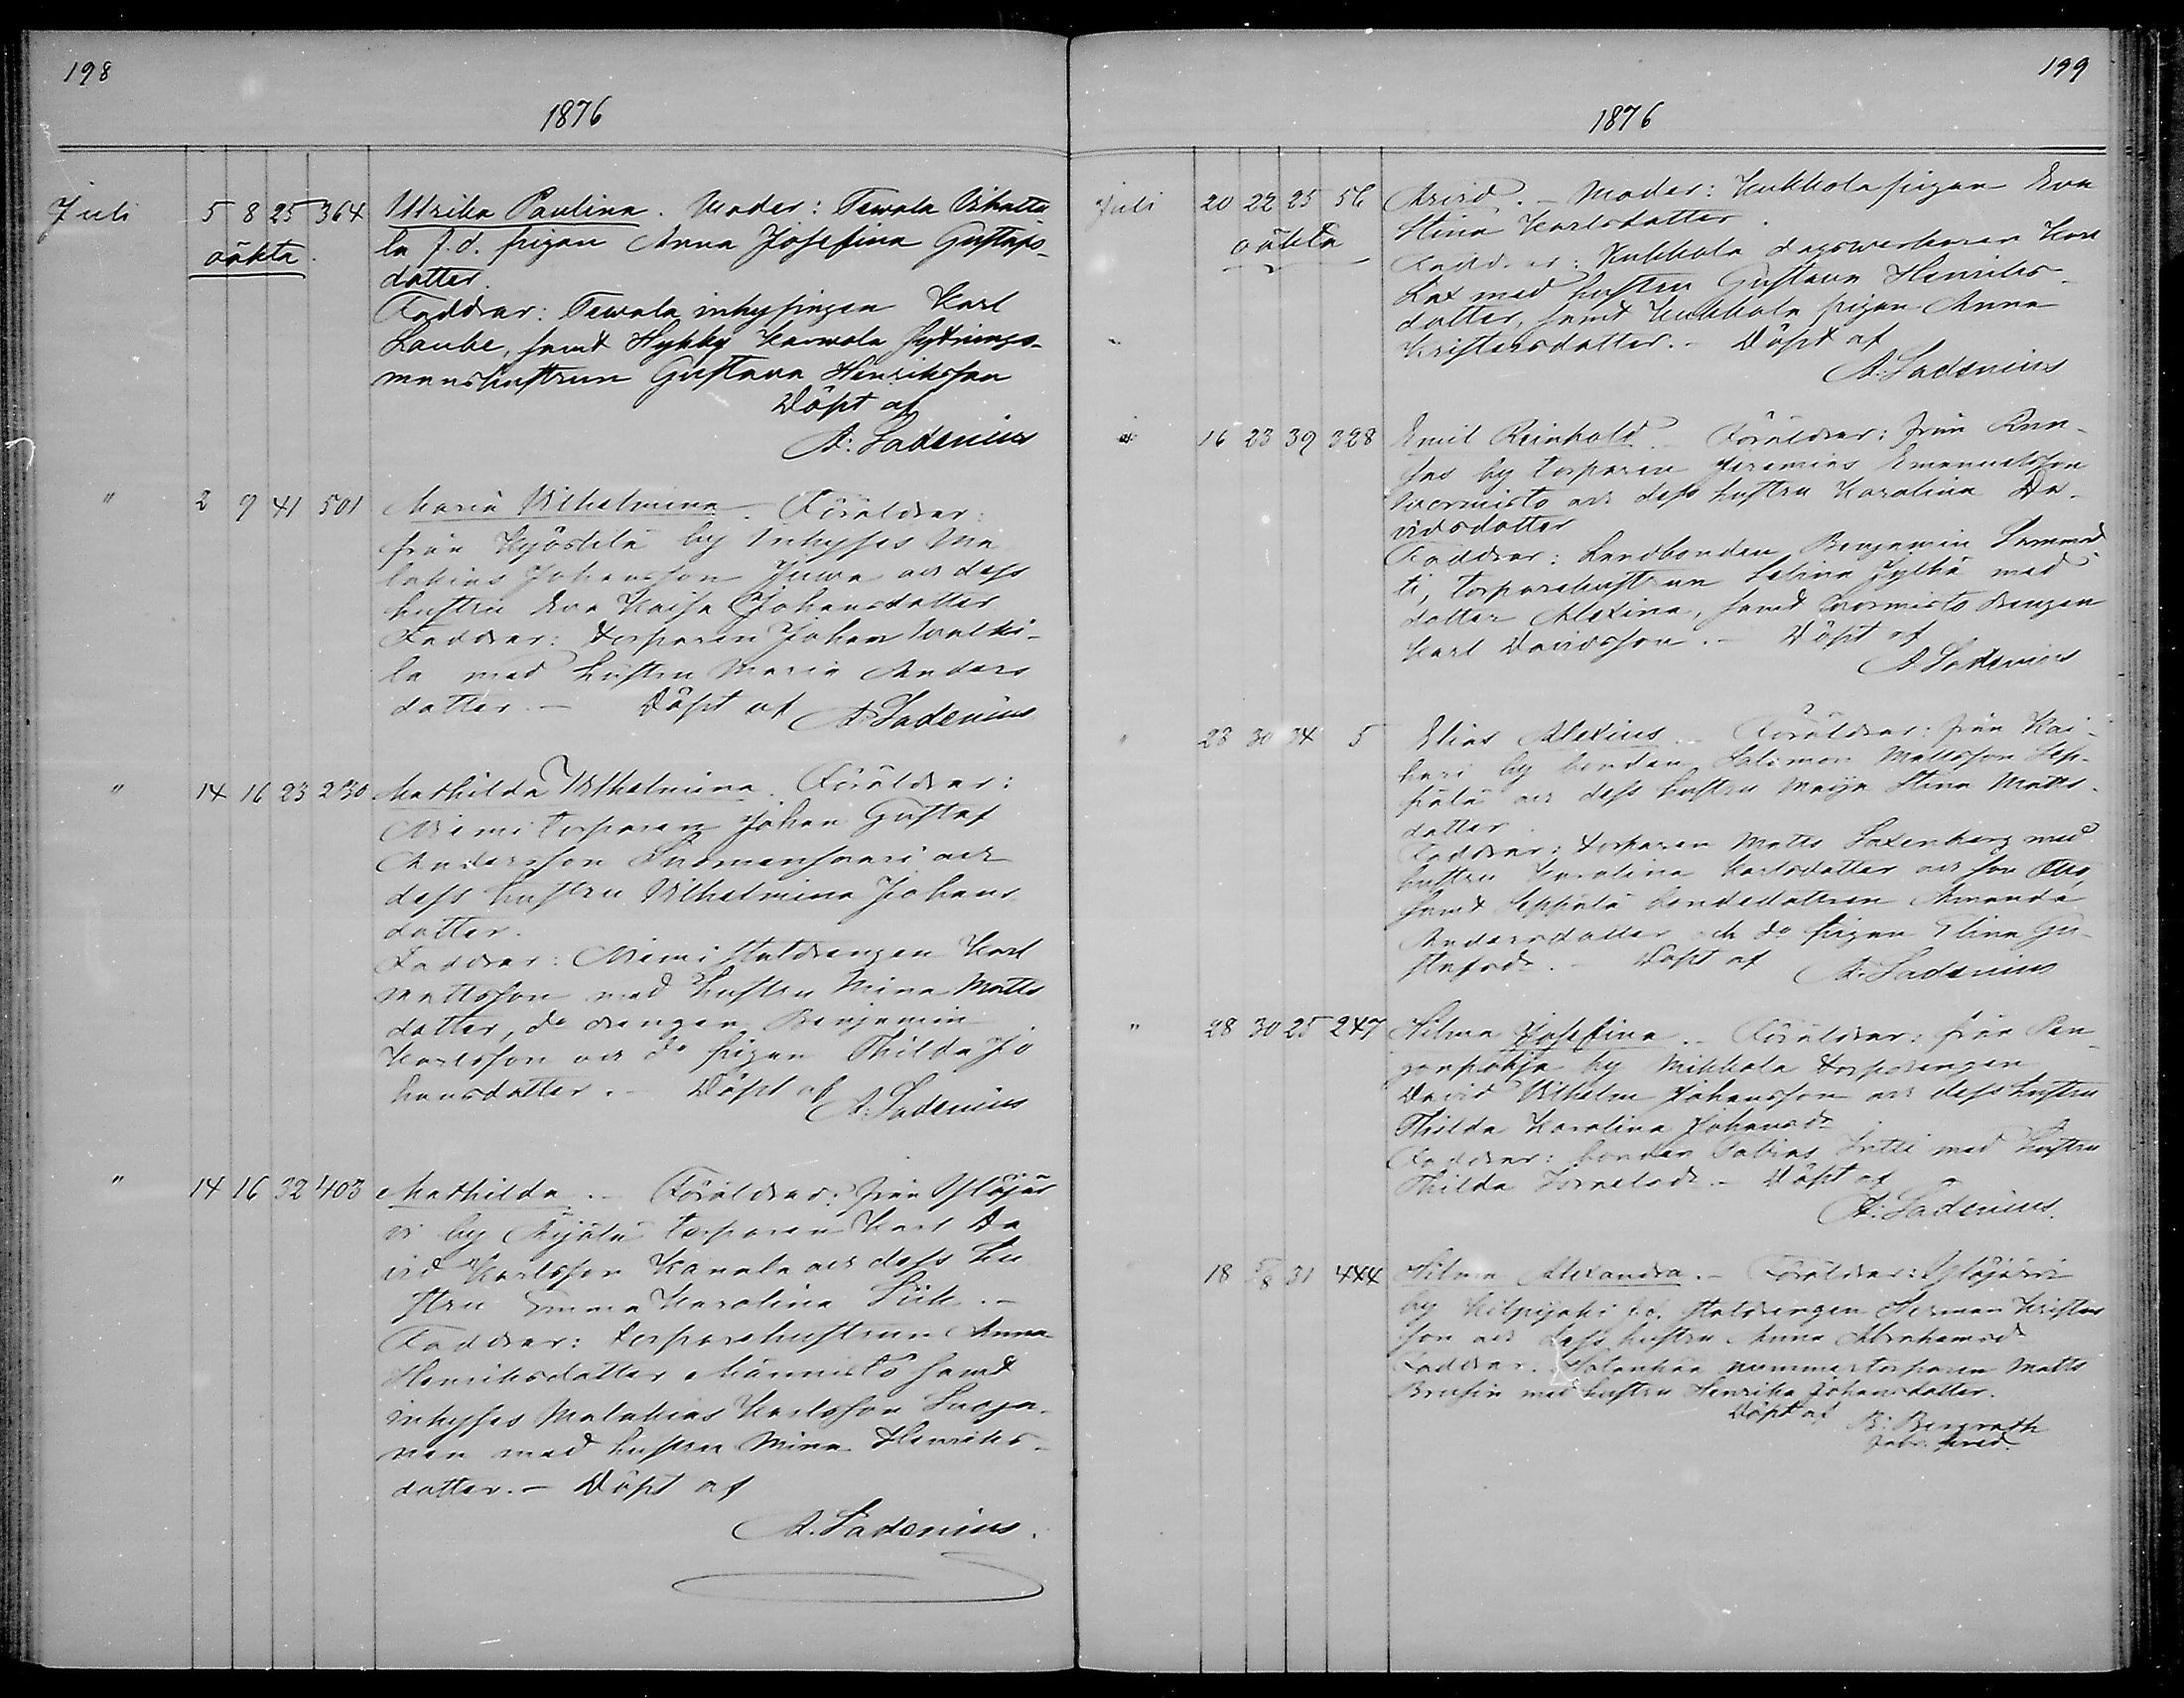 198
1876
Juli 5 8 25 364 Ulrika Paulina. Moder: Tewala Uhatta
oäkta. la f.d. pigan Anna Josefina Gustafs-
datter.
Faddrar: Tewala inhysingen Karl
Laube, samt Hykky Karwola flytnings-
manshustrun Gustava Henriksson
Döpt af
A. Ladenius
" 2 9 41 501 Maria Vilhelmina. Föräldrar:
från Kyöstilä by Inhyses Ma
lakias Johansson Juwa och dess
hustru Eva Kaisa Johansdotter
Faddrar: torparen Johan
la med hustru Maria Anders
datter. – Döpt af A. Ladenius
" 14 16 23 230 Mathilda Vilhelmina. Föräldrar:
Niemi torparen Johan Gustaf
Andersson Suomensaari och
dess hustru Vilhelmina Johans
datter.
Faddrar: Niemi statdrengen Karl
Mattsson med hustru Mina Matts
datter, do drengen Benjamin
Karlsson och do pigan Thilda Jo
hansdatter. – Döpt af A. Ladenius
" 14 16 32 403 Mathilda. – Föräldrar: från Ylöjär
vi by Äijälä torparen Karl Da
vid Karlsson Kanala och dess hu
stru Emma Karolina Siik. –
Faddrar: torparehustrun Anna
Henriksdatter Männistö samt
inhyses Malakias Karlsson Suoja-
nen med hustru Mina Henriks-
datter. – Döpt af
A. Ladenius.
199
1876
Juli 20 22 25 56 Arvid. – Moder: Kukkola pigan Eva
oäkta Stina Karlsdatter.
Faddrar: Kukkola dagswerkaren Karl
Lax med hustru Gustava Henriks-
datter, samt Kukkola pigan Anna
Kristersdatter. – Döpt af
A. Ladenius
" 16 23 39 328 Emil Reinhold. – Föräldrar: från Run-
sas by torparen Jeremias Emanuelsson
Wuormisto och dess hustru Karolina Da-
vidsdotter
Faddrar: Landbonden Benjamin Lammi
ti, torparehustrun Sabina Jylhä med
dotter Alexina, samt Wuormisto drengen
Karl Davidsson. – Döpt af
A. Ladenius
" 23 30 34 5 Elias Alexius. – Föräldrar: från Kai-
hari by bonden Salomon Mattsson Sep-
pälä och dess hustru Maija Stina Matts-
datter.
Faddrar: torparen Matts Laxenberg med
hustru Karolina Karlsdatter och son Otto,
samt Seppälä bondedattren Amanda
Andersdatter och do pigan Elina Gu-
stafsdr. – Döpt af A. Ladenius
" 28 30 25 247 Hilma Josefina. – Föräldrar: från Pen
gonpohja by Mikkola torpdrengen
David Vilhelm Johansson och dess hustru
Thilda Karolina Johansdr
Faddrar: bonden Tobias Jutti med hustru
Thilda Kornelsdr. – Döpt af
A. Ladenius.
18 5/8 31 444 Hilma Alexandra. – Föräldrar: Ylöjärvi
by Kilpijoki f.d. statdrengen Herman Kristers
son och dess hustru Anna Abrahamsd
Faddrar. nummertorparen Matts
Brusin med hustru Henrika Johansdatter.
Döpt af B. Bergroth